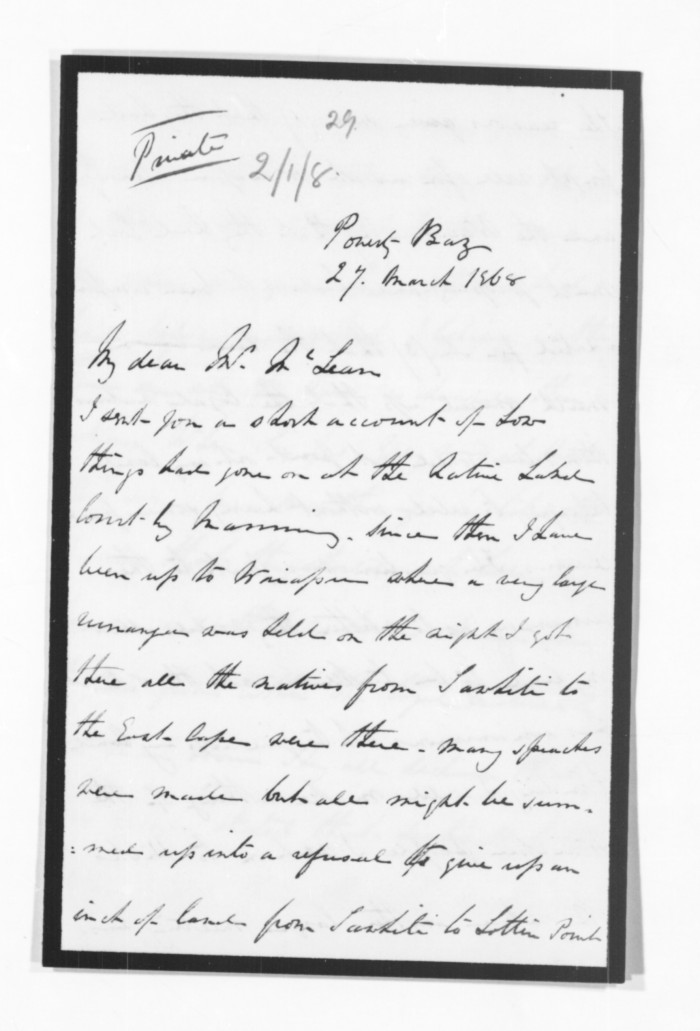 29
Private
2/1/8
Poverty Bay
27. March 1868
My dear Mr. McLean
I sent you a short account of how
things had gone on at the Native Land
Court by Manning. Since then I have
been up to Waiapu where a very large
runanga was held on the night I got
there all the natives from Tawhiti to
the East Cape were there. many speeches
were made but all might be sum-
:med up into a refusal to give up an
inch of land from Tawhiti to Lottin Point